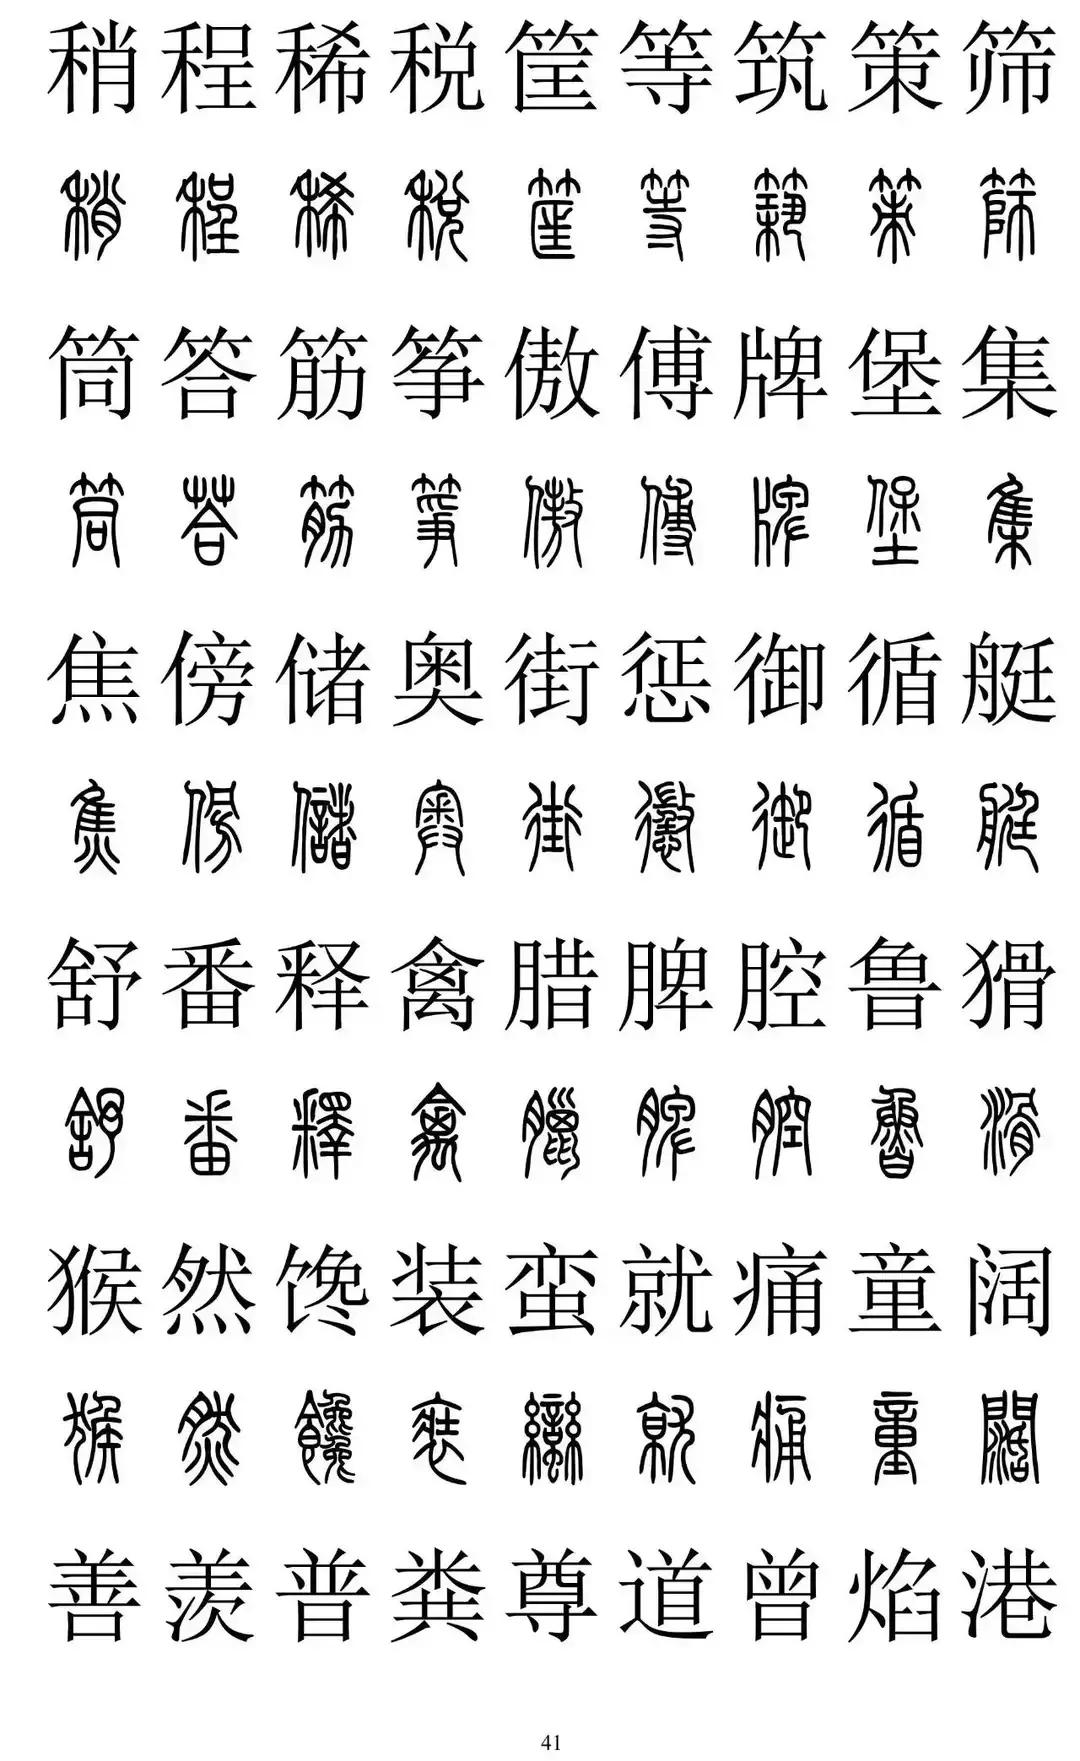 稍程稀税筐等筑策筛
稍程稀税筐等筑策筛
筒答筋筝傲傅牌堡集
筒荅筋筝傲傅牌堡集
焦傍储奥街惩御循艇
焦傍儲奥街懲御循艇
舒番释禽腊脾腔鲁猾
舒番釋禽臘脾腔魯滑
猴然馋装蛮就痛童阔
猴然饞装蠻就痛童闊
善羡普粪尊道曾焰港
41